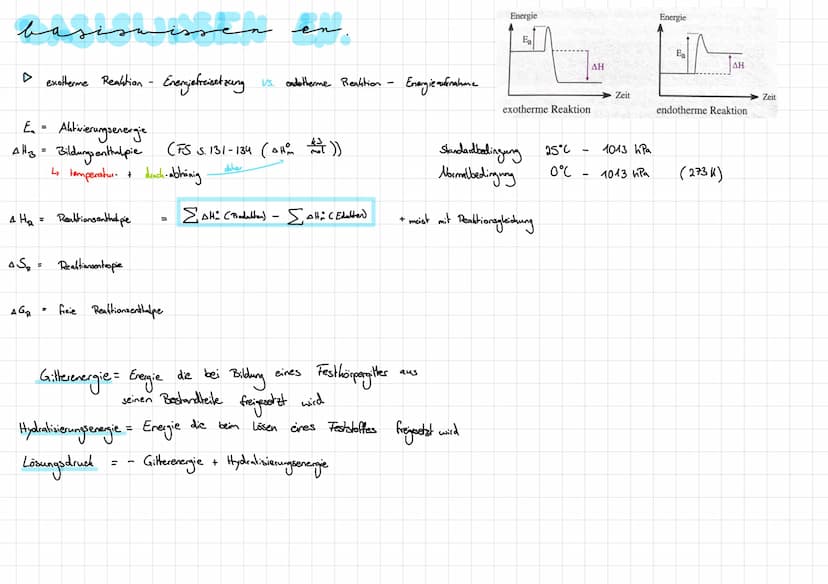 basiswissen en.
Energie
Energie
Ea
ΔH
Ea
ΔH
Zeit
Zeit
exotherme Reaktion
endotherme Reaktion
▷ exotherme Reaktion - Energiefreisetzung vs. endotherme Reaktion - Energieaufnahme
Ea = Aktivierungsenergie
ΔHB = Bildungsenthalpie (FS S. 131-134 (ΔH°m kJ/mol))
↳ temperatur- + druck-abhänig daher
Standardbedingung 25°C - 1013 hPa
Normalbedingung 0°C - 1013 hPa (273 K)
ΔHR = Reaktionsenthalpie = ∑ ΔH°f (Produkten) - ∑ ΔH°f (Edukten) + meist mit Reaktionsgleichung
ΔSR = Reaktionsentropie
ΔGR = freie Reaktionsenthalpe
Gitterenergie = Energie die bei Bildung eines Festkörpergitter aus
seinen Bestandteile freigesetzt wird
Hydratisierungsenergie = Energie die beim lösen eines Feststoffes freigesetzt wird
Lösungsdruck = - Gitterenergie + Hydratisierungsenergie